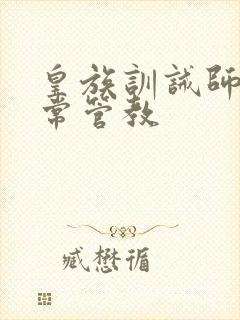 皇族訓誡師
常管教
臧懋循